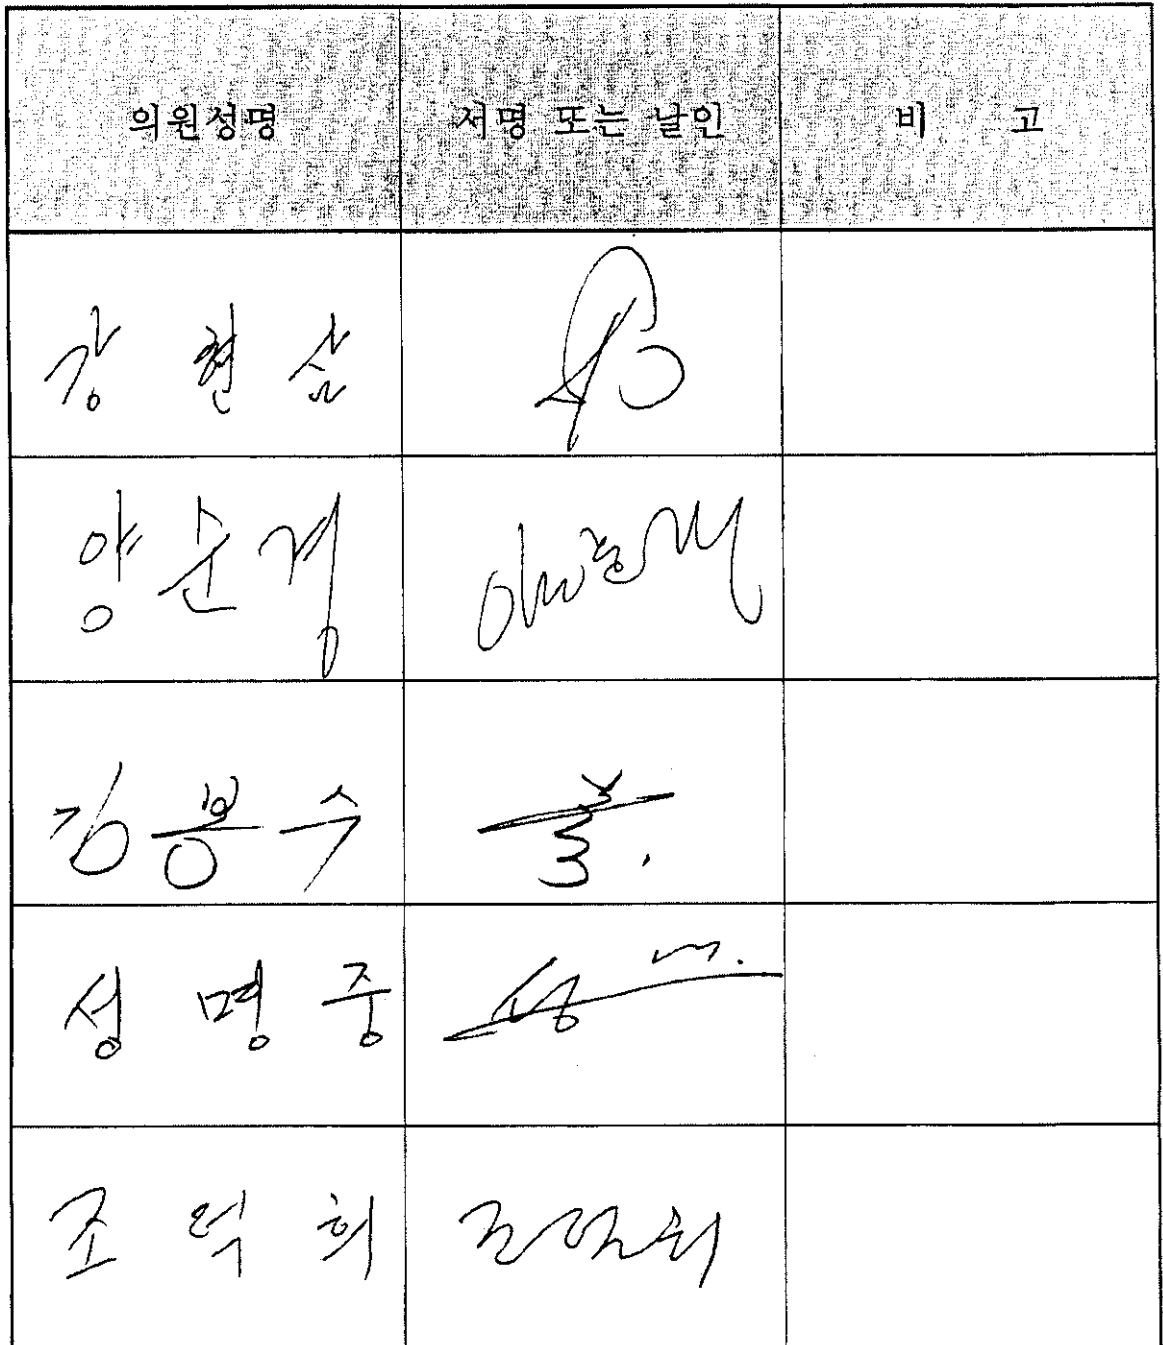 의원성명 서명 또는 날인 비 고
강 현 삼
양 순 경
김 봉 수
성 명 중
조 덕 희 조덕희